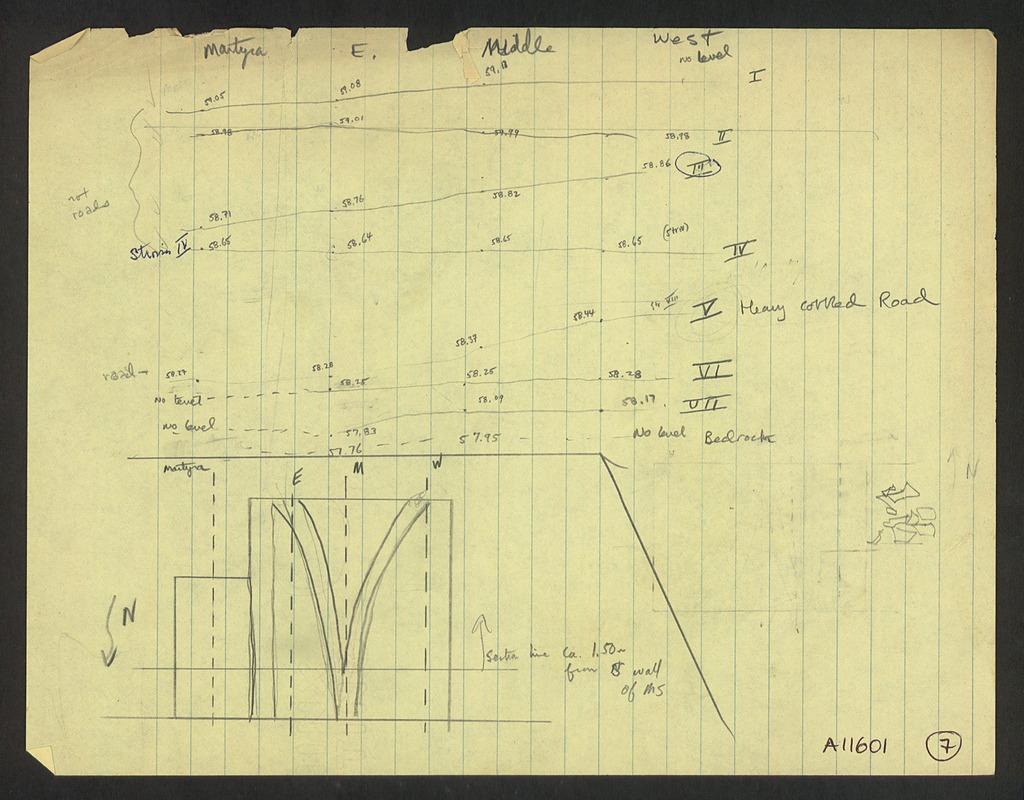 Martyra E. Middle West
no level
59.05 59.08 59.11 I
58.98 59.01 58.99 58.98 II
58.71 58.76 58.82 58.86 III
not roads
Strosis IV 58.65 58.64 58.65 58.65 (Strw) IV
58.37 58.44 V Heavy cobbled Road
road → 58.27 58.28
58.25 58.25 58.28 VI
No level
58.09 58.17 VII
No level 57.83
57.76 57.95 No level Bedrock
Martyra E M W
N
N
Section line ca. 1.50m
from S wall
of MS
A11601 7